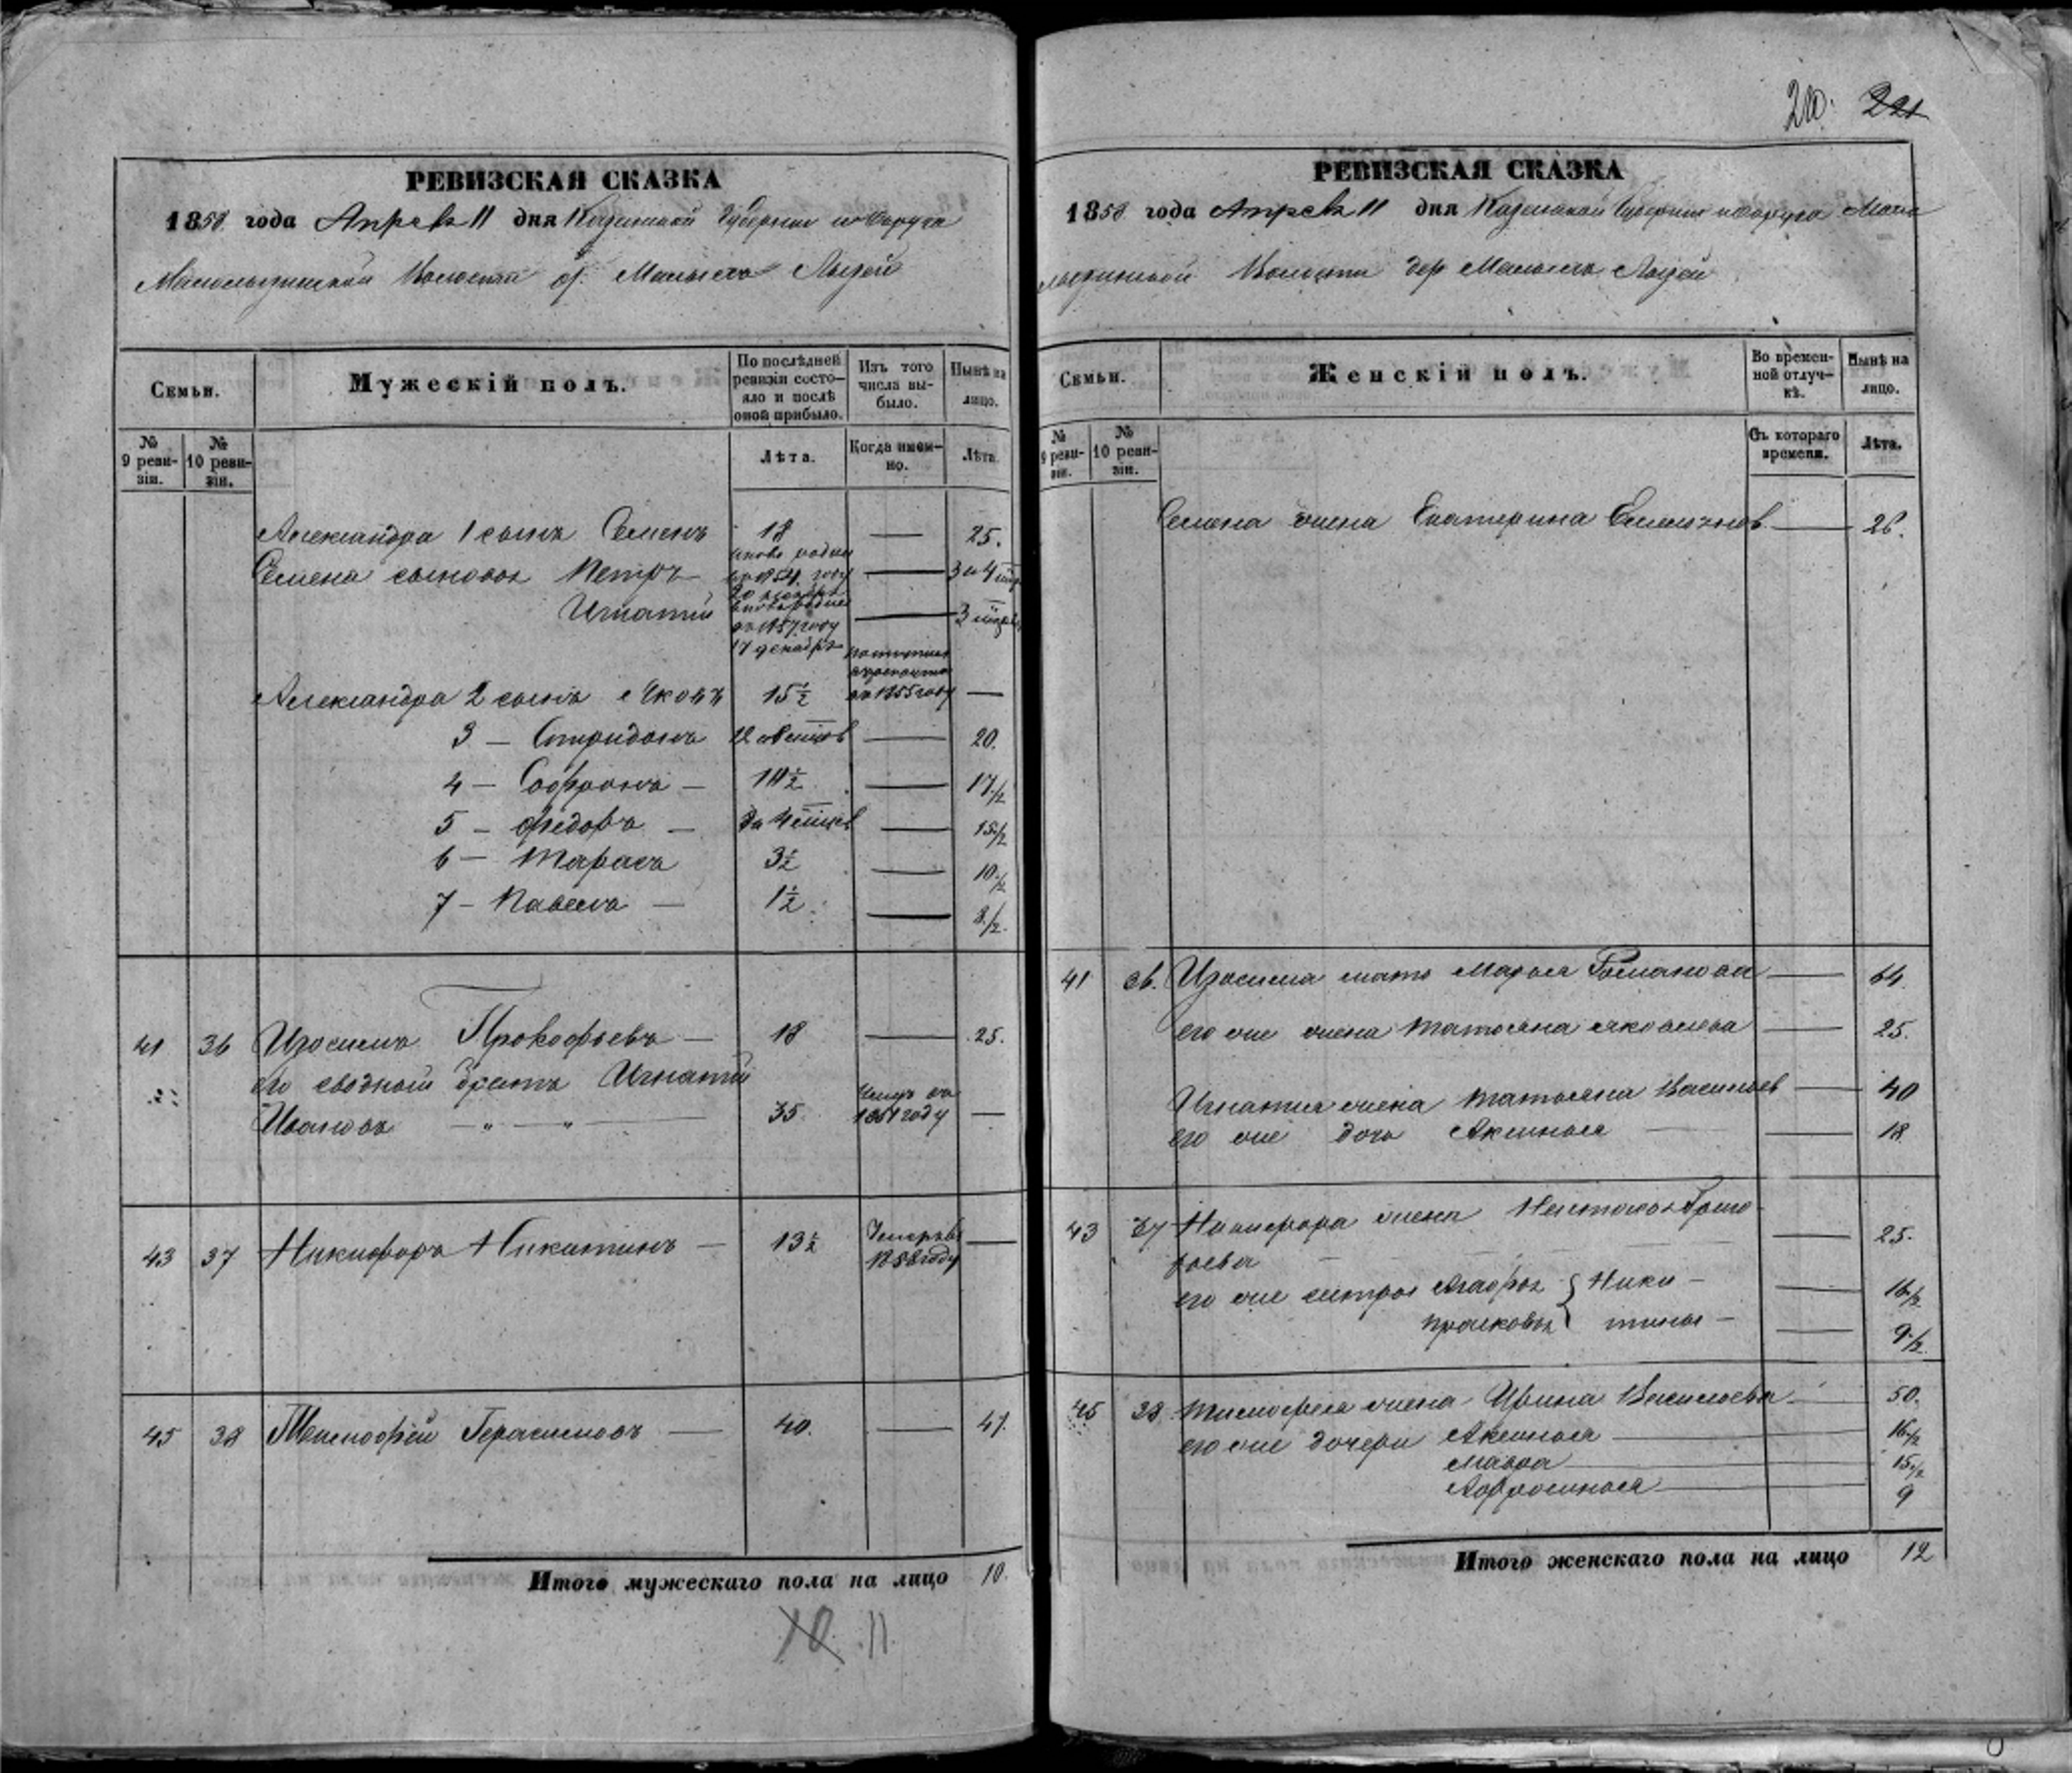 РЕВИЗСКАЯ СКАЗКА
1858 года Апреля 11 дня Казанской Губернии и Округа
Волости д. Малыхъ Лызей
Семьи.
Мужескій полъ.
По послѣдней ревизіи состо-яло и послѣ оной прибыло.
Изъ того числа вы-было.
Нынѣ на лицо.
№ 9 реви-зіи.
№ 10 реви-зіи.
Лѣта.
Когда имен-но.
Лѣта.
Александра 1 сынъ Семенъ 18 — 25.
Семена сыновья Петръ — 1854 году — 3 и 4
Игнатій въ 1857 году 17 декабря — 3
Александра 2 сынъ Яковъ 15½ въ 1855 году —
3 — Спиридонъ 12 — 20.
4 — Софронъ — 10½ — 17½
5 — Федоръ — — 15½
6 — Тарасъ 3½ — 10½
7 — Павелъ — 1½ — 8½
41 36 Изосимъ Прокофьевъ — 18 — 25.
его сводный братъ Игнатій
Ивановъ — „ — „ — 35 году —
43 37 Никифоръ Никитинъ — 13½ Умеръ въ 1858 году —
45 38 Тимофей Герасимовъ — 40. — 47.
Итого мужескаго пола на лицо 10.
10 11
210. 221
РЕВИЗСКАЯ СКАЗКА
1858 года Апреля 11 дня Казанской Губернии и Округа Мало
Волости дер Малыхъ Лызей
Семьи.
Женскій полъ.
Во времен-ной отлуч-кѣ.
Нынѣ на лицо.
№ 9 реви-зіи.
№ 10 реви-зіи.
Съ котораго времени.
Лѣта.
Семена жена Екатерина — 26.
41 36. Изосима мать Марья Романова — 64.
его же жена Татьяна Яковлева — 25.
Игнатия жена Татьяна Васильев — 40
его же дочь Аксинья — 18.
43 37 Никифора жена Настасья Григо-
рьева — 25.
его же сестры Агафья } Ники- — 16½
Прасковья } тины — — 9½
45 38. Тимофея жена Ирина Васильева — 50.
его же дочери Аксинья — 16½
Мавра — 15½
Афросинья — 9
Итого женскаго пола на лицо 12